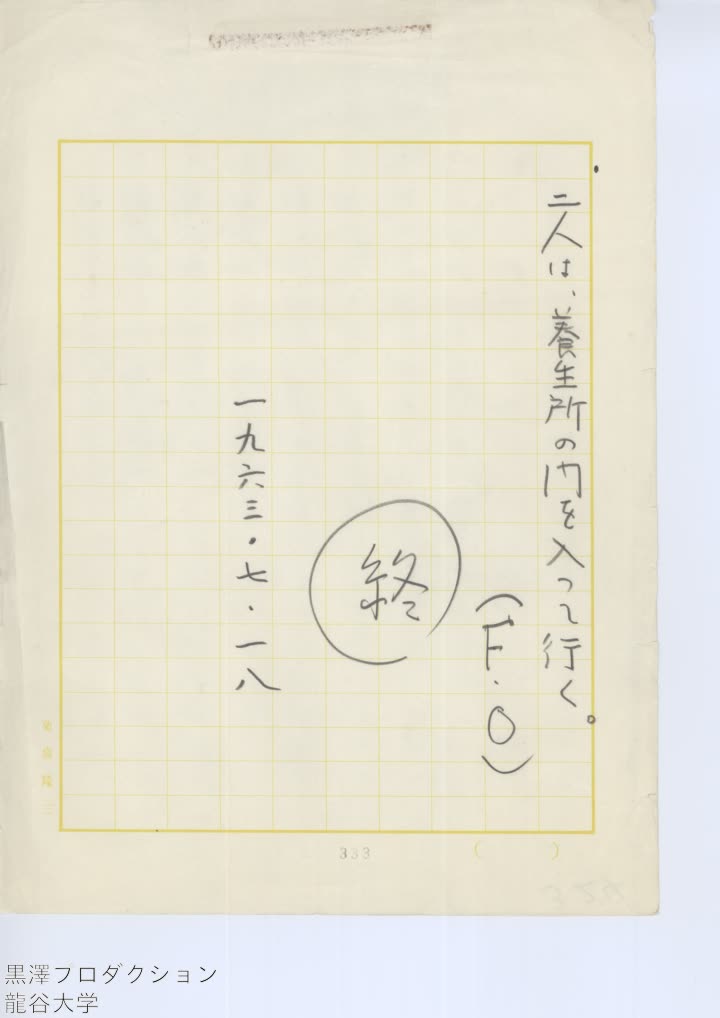 二人は、養生所の門を入って行く。
(F・O)
終
一九六三・七・一八
333
( )
黒澤プロダクション
龍谷大学